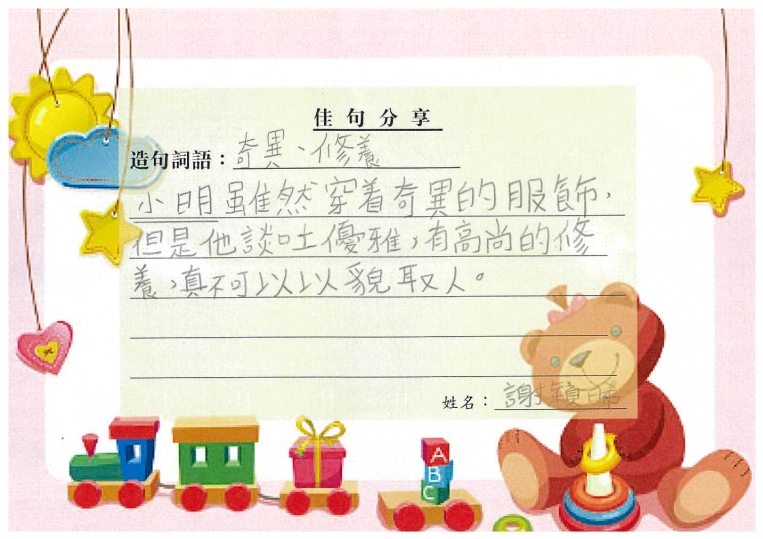 佳句分享
造句詞語：奇異、修養
小明雖然穿着奇異的服飾，
但是他談吐優雅，有高尚的修
養，真不可以以貌取人。
姓名：謝穎晞
A
B
C